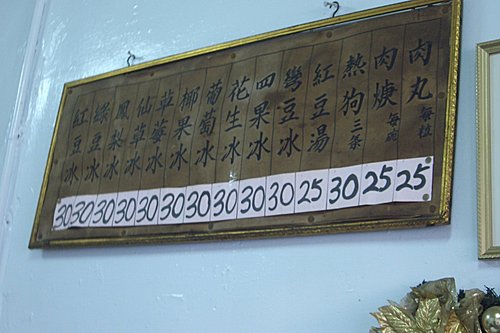 肉丸 每粒 25
肉焿 每碗 25
熱狗 三条 30
紅豆湯 25
彎豆冰 30
四果冰 30
花生冰 30
葡萄冰 30
椰果冰 30
草莓冰 30
仙草冰 30
鳳梨冰 30
綠豆冰 30
紅豆冰 30